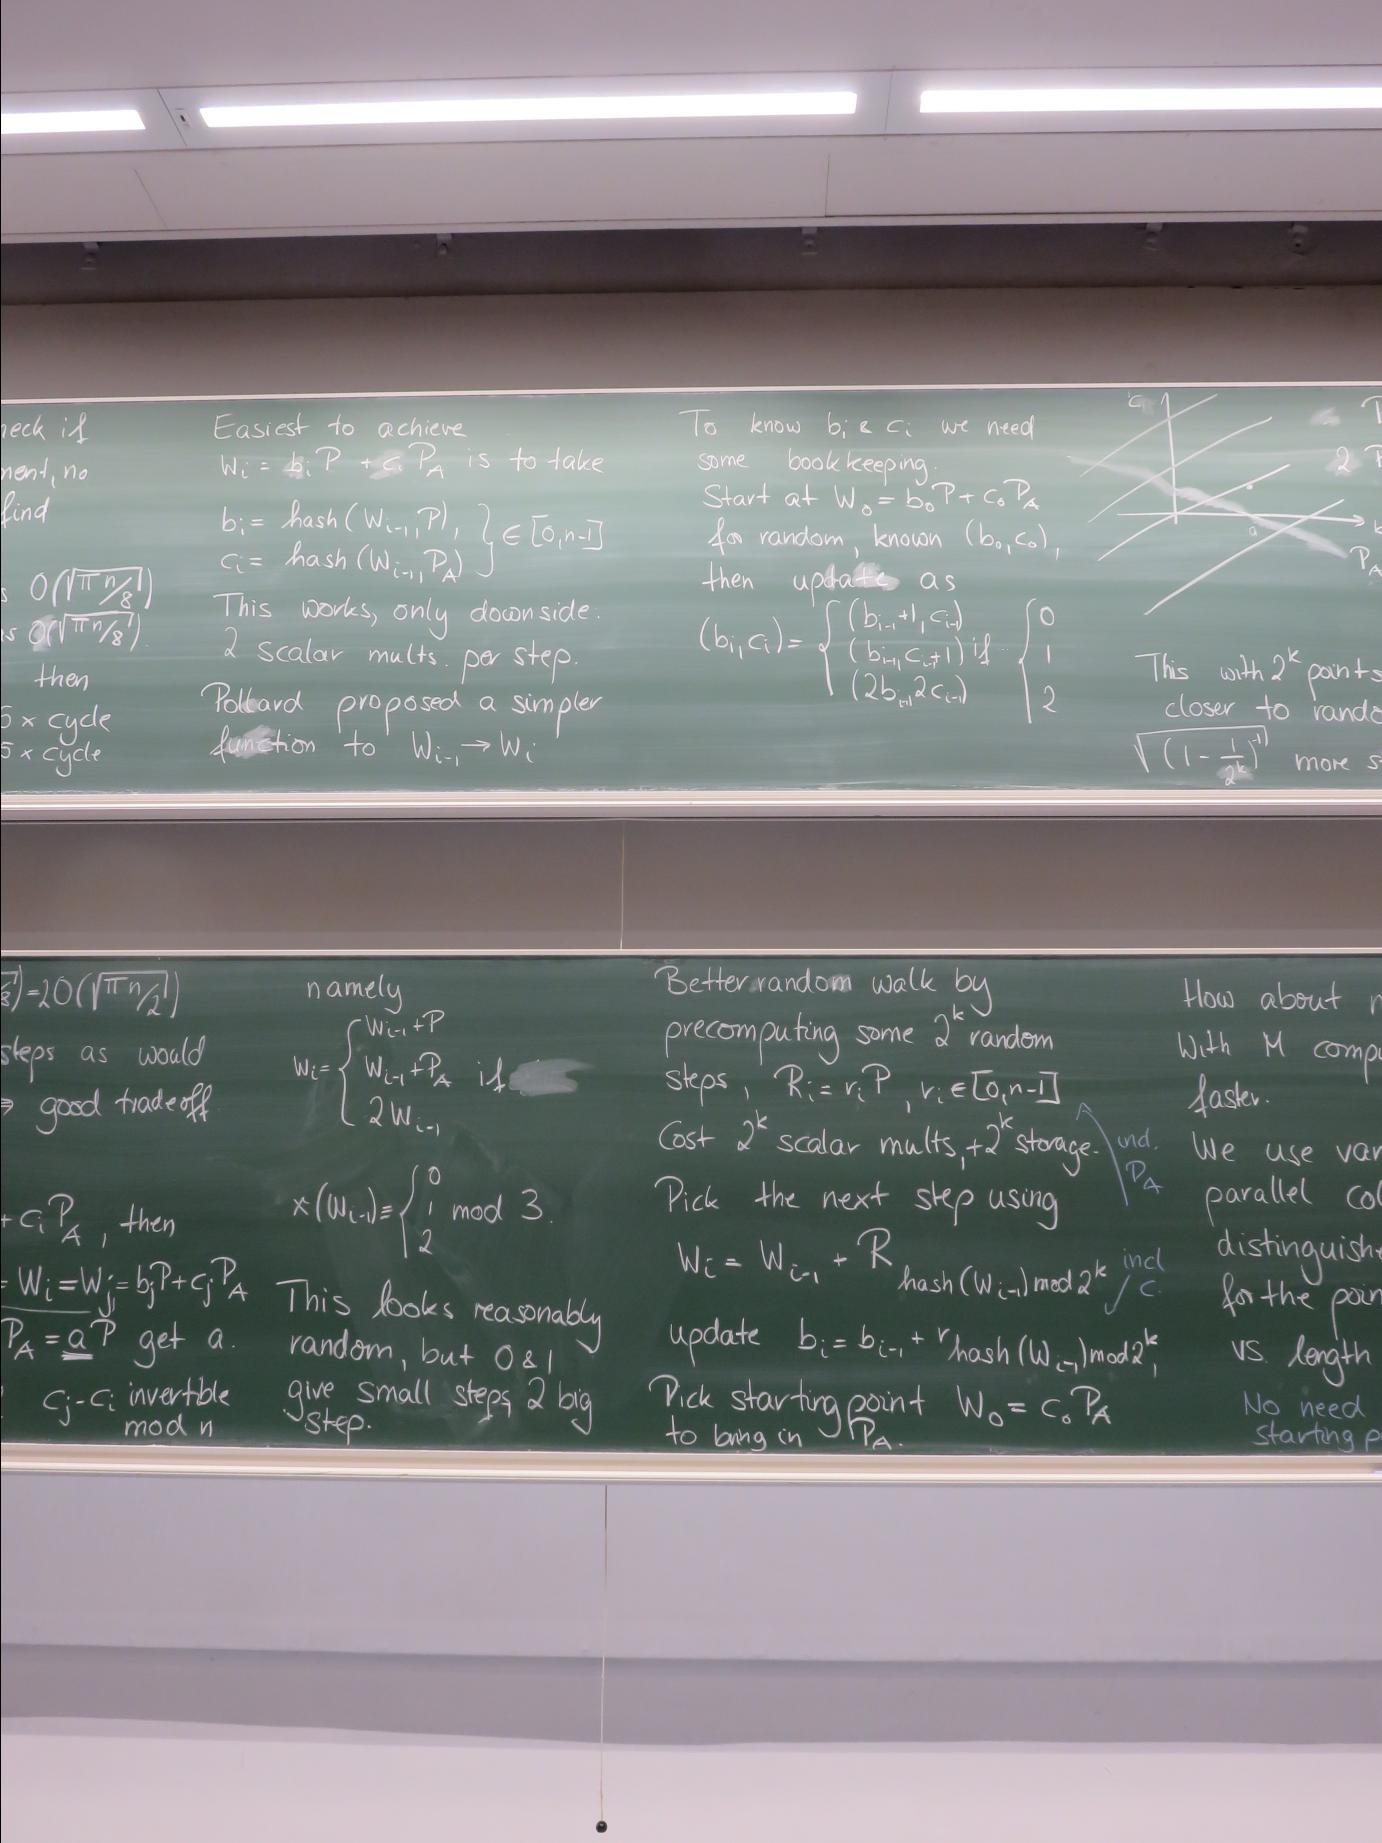 neck if
ment, no
find
s O(√πn/8)
is O(√πn/8).
then
5 x cycle
5 x cycle
Easiest to achieve
Wi = bi P + ci PA is to take
bi = hash(Wi-1, P),
ci = hash(Wi-1, PA) } ∈ [0, n-1]
This works, only downside:
2 scalar mults. per step.
Pollard proposed a simpler
function to Wi-1 → Wi
To know bi & ci we need
some bookkeeping.
Start at W0 = b0 P + c0 PA
for random, known (b0, c0),
then update as
(bi, ci) = { (bi-1+1, ci-1) { 0
(bi-1, ci-1+1) if 1
(2bi-1, 2ci-1) 2
c
2 P
a
PA
This with 2^k points
closer to rando
√(1 - 1/2^k)^-1 more s
8) = 2O(√πn/2)
steps as would
⇒ good tradeoff
+ ci PA, then
= Wi = Wj = bj P + cj PA
PA = a P get a.
cj - ci invertible
mod n
namely
Wi = { Wi-1 + P
Wi-1 + PA if
2Wi-1
x(Wi-1) ≡ { 0
1 mod 3.
2
This looks reasonably
random, but 0 & 1
give small steps, 2 big
step.
Better random walk by
precomputing some 2^k random
steps, Ri = ri P, ri ∈ [0, n-1]
Cost 2^k scalar mults, + 2^k storage.
ind.
PA
Pick the next step using
Wi = Wi-1 + R hash(Wi-1) mod 2^k
incl
c.
update bi = bi-1 + r hash(Wi-1) mod 2^k,
Pick starting point W0 = c0 PA
to bring in PA.
How about
With M comp
faster.
We use var
parallel col
distinguishe
for the poin
vs. length
No need
starting p